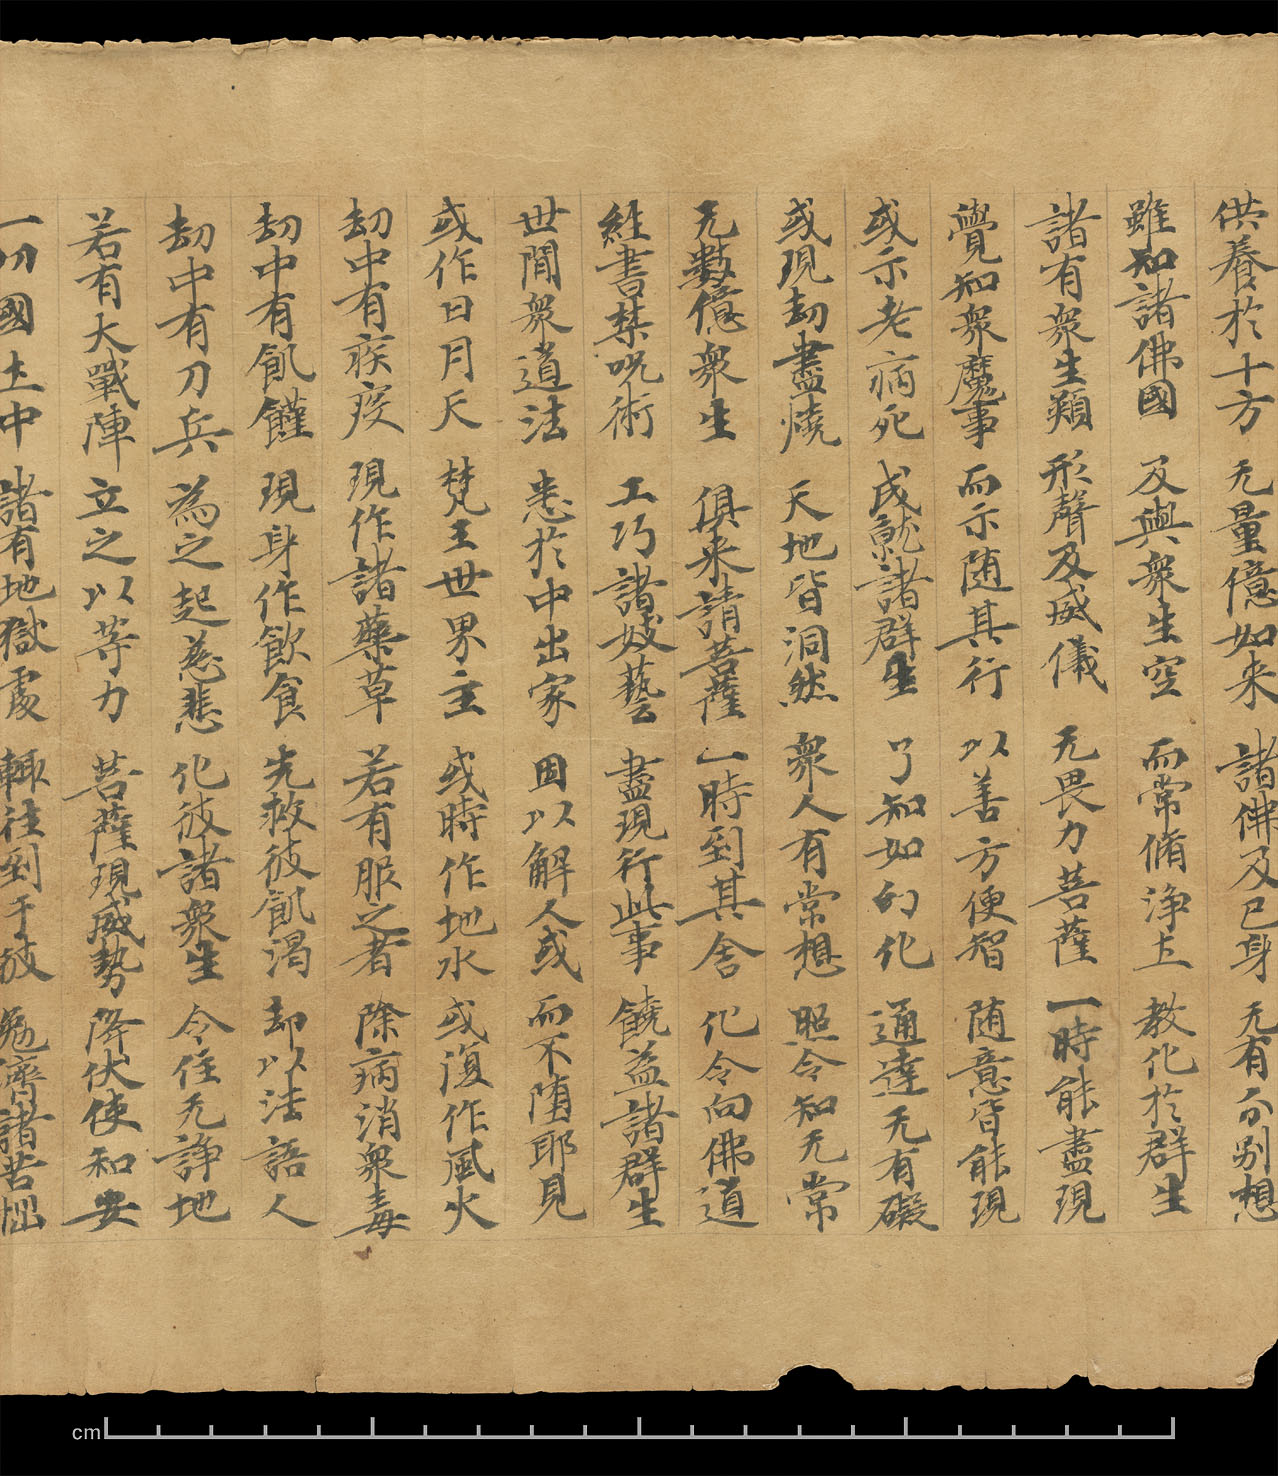 供養於十方 无量億如来 諸佛及己身 无有分别想
雖知諸佛國 及與衆生空 而常脩淨土 教化於群生
諸有衆生類 形聲及威儀 无畏力菩薩 一時能盡現
覺知衆魔事 而示随其行 以善方便智 随意皆能現
或示老病死 成就諸群生 了知如幻化 通達无有礙
或現劫盡燒 天地皆洞然 衆人有常想 照令知无常
无數億衆生 俱来請菩薩 一時到其舍 化令向佛道
經書禁呪術 工巧諸妓藝 盡現行此事 饒益諸群生
世間衆道法 悉於中出家 因以解人或 而不堕耶見
或作日月天 梵王世界主 或時作地水 或復作風火
劫中有疾疫 現作諸藥草 若有服之者 除病消衆毒
劫中有飢饉 現身作飲食 先救彼飢渴 却以法語人
劫中有刀兵 為之起慈悲 化彼諸衆生 令住无諍地
若有大戰陣 立之以等力 菩薩現威勢 降伏使和安
一切國土中 諸有地獄處 輙往到于彼 勉濟諸苦惱
cm